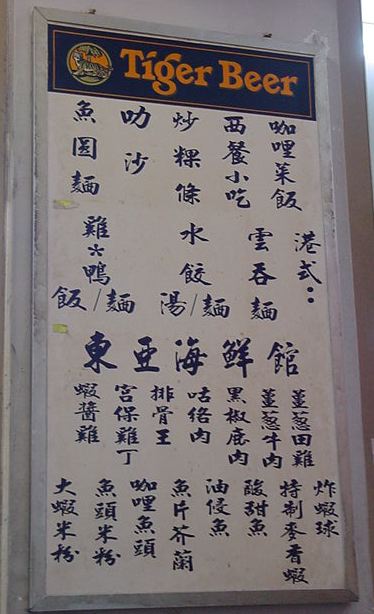 Tiger Beer
咖哩菜飯
西餐小吃
炒粿條
叻沙
魚圆麵
港式：
雲吞麵
水餃湯/麵
雞*鴨飯/麵
東亚海鮮館
薑蔥田雞
薑蔥牛肉
黑椒鹿肉
咕咾肉
排骨王
宮保雞丁
蝦醬雞
炸蝦球
特制麥香蝦
酸甜魚
油侵魚
魚片芥蘭
咖哩魚頭
魚頭米粉
大蝦米粉